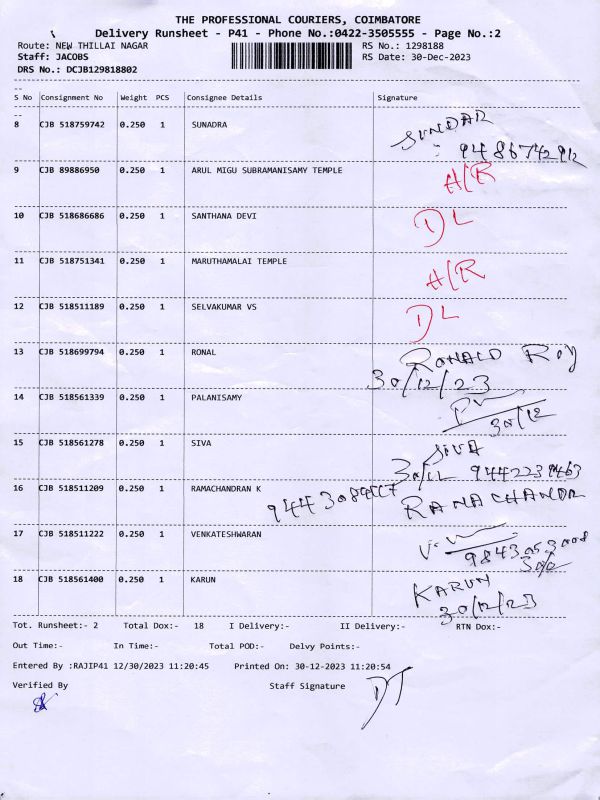 THE PROFESSIONAL COURIERS, COIMBATORE
Delivery Runsheet - P41 - Phone No.:0422-3505555 - Page No.:2
Route: NEW THILLAI NAGAR RS No.: 1298188
Staff: JACOBS RS Date: 30-Dec-2023
DRS No.: DCJB129818802
S No Consignment No Weight PCS Consignee Details Signature
8 CJB 518759742 0.250 1 SUNADRA SUNDAR
9 CJB 89886950 0.250 1 ARUL MIGU SUBRAMANISAMY TEMPLE H/R
10 CJB 518686686 0.250 1 SANTHANA DEVI DL
11 CJB 518751341 0.250 1 MARUTHAMALAI TEMPLE H/R
12 CJB 518511189 0.250 1 SELVAKUMAR VS DL
13 CJB 518699794 0.250 1 RONAL RONALD ROY
30/12/23
14 CJB 518561339 0.250 1 PALANISAMY
30/12
15 CJB 518561278 0.250 1 SIVA SIVA
30/12 9442239463
16 CJB 518511209 0.250 1 RAMACHANDRAN K RAMACHANDR
17 CJB 518511222 0.250 1 VENKATESHWARAN
9843053008
18 CJB 518561400 0.250 1 KARUN KARUN
30/12/23
Tot. Runsheet:- 2 Total Dox:- 18 I Delivery:- II Delivery:- RTN Dox:-
Out Time:- In Time:- Total POD:- Delvy Points:-
Entered By :RAJIP41 12/30/2023 11:20:45 Printed On: 30-12-2023 11:20:54
Verified By Staff Signature